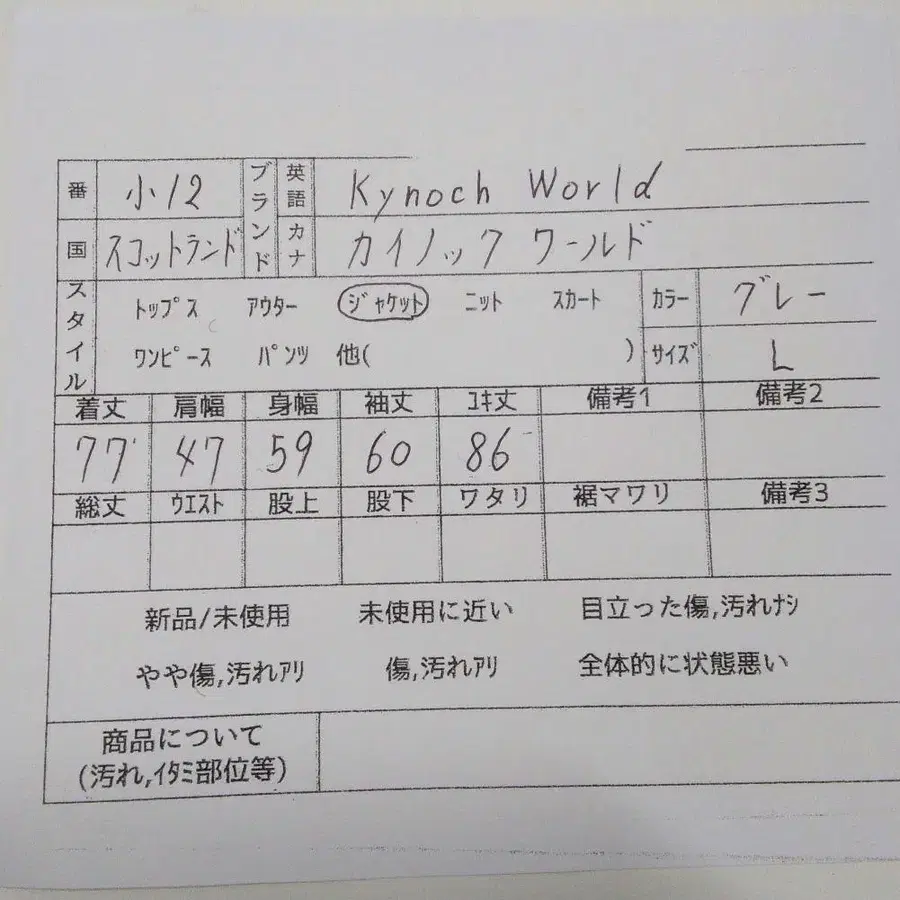 番 小12 ブランド 英語 Kynoch World
国 スコットランド カナ カイノック ワールド
スタイル トップス アウター ジャケット ニット スカート カラー グレー
ワンピース パンツ 他( ) サイズ L
着丈 肩幅 身幅 袖丈 ユキ丈 備考1 備考2
77 47 59 60 86
総丈 ウエスト 股上 股下 ワタリ 裾マワリ 備考3
新品/未使用 未使用に近い 目立った傷,汚れナシ
やや傷,汚れアリ 傷,汚れアリ 全体的に状態悪い
商品について
(汚れ,イタミ部位等)